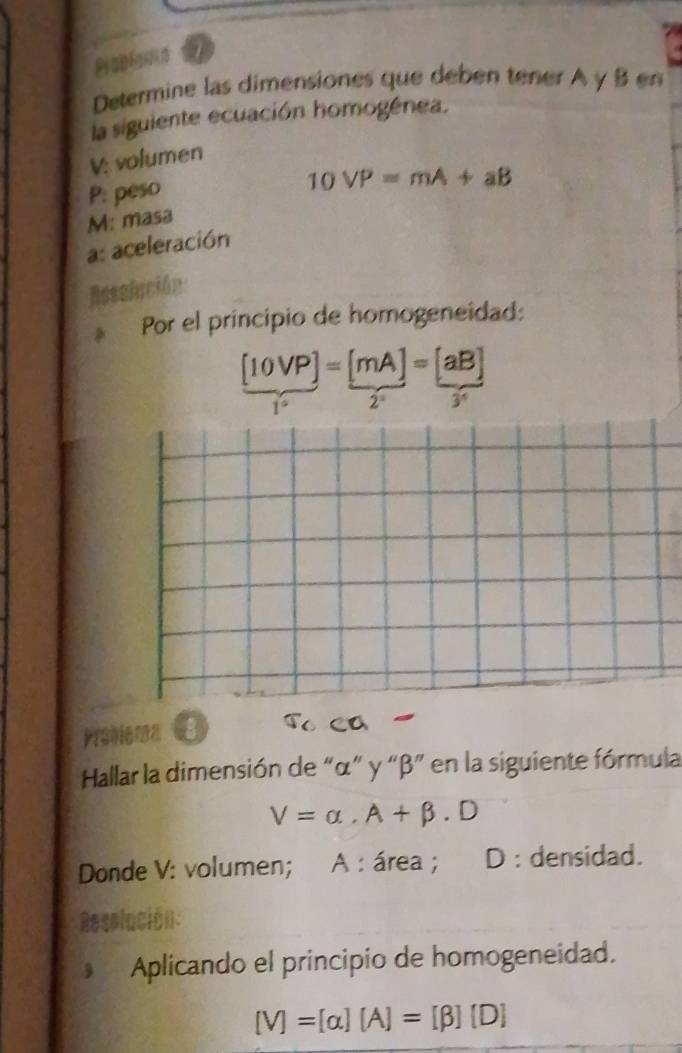 Problema 7
Determine las dimensiones que deben tener A y B en
la siguiente ecuación homogénea.
V: volumen
P: peso
10 VP = mA + aB
M: masa
a: aceleración
Resolución:
Por el principio de homogeneidad:
[10 VP] = [mA] = [aB]
1° 2° 3°
Problema 8
Hallar la dimensión de “α” y “β” en la siguiente fórmula
V = α . A + β . D
Donde V: volumen; A : área ; D : densidad.
Resolución:
Aplicando el principio de homogeneidad.
[V] = [α] [A] = [β] [D]